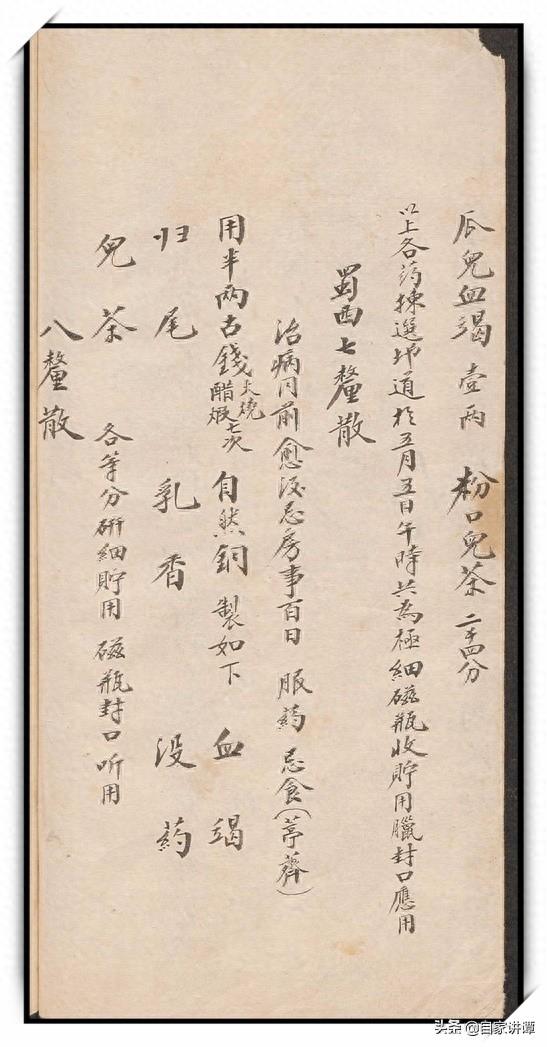 瓜兒血竭 壹兩 粉口兒茶 二千四分
以上各药揀選地道於五月五日午時共為極細磁瓶收貯用臘封口應用
蜀西七釐散
治病同前愈後忌房事百日 服药忌食(荸薺)
用半兩古錢火燒醋煅七次 自然銅 製如下 血竭
归尾 乳香 没药
兒茶 各等分研細貯用 磁瓶封口听用
八釐散
头条 @自家讲谭